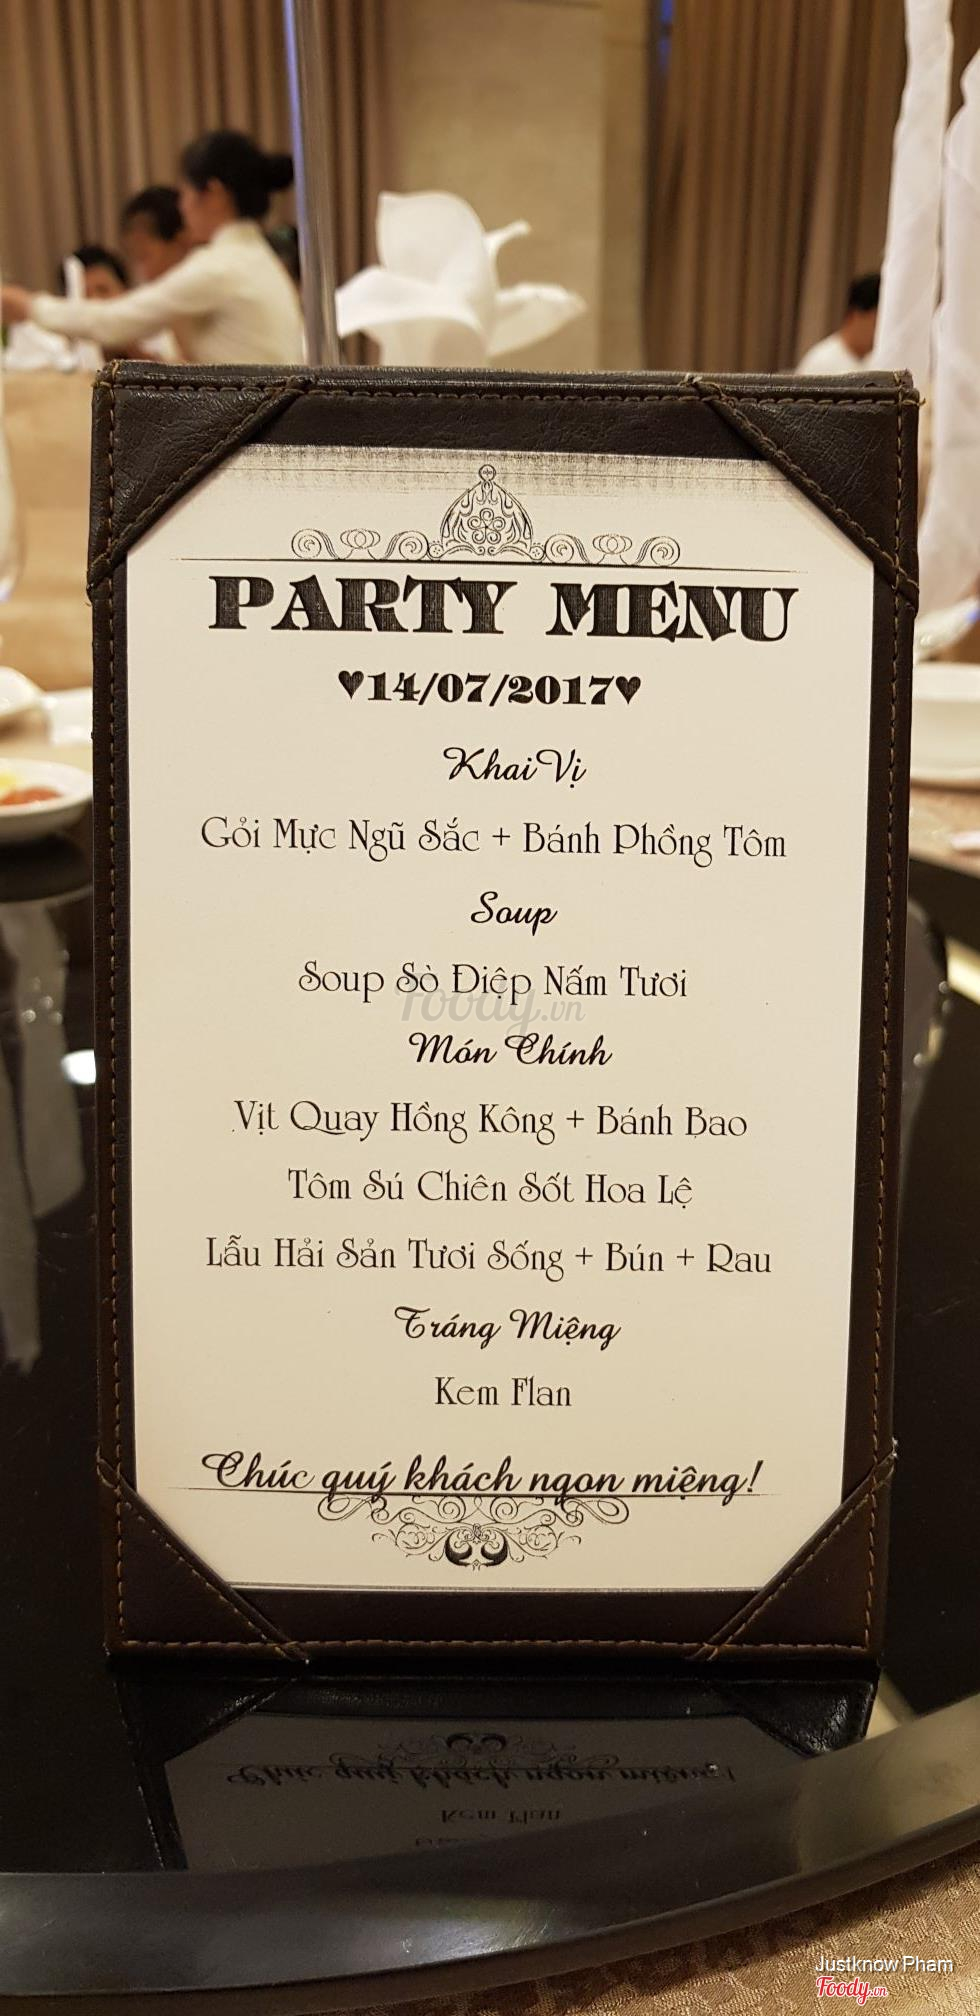 PARTY MENU
♥14/07/2017♥
Khai Vị
Gỏi Mực Ngũ Sắc + Bánh Phồng Tôm
Soup
Soup Sò Điệp Nấm Tươi
foody.vn
Món Chính
Vịt Quay Hồng Kông + Bánh Bao
Tôm Sú Chiên Sốt Hoa Lệ
Lẩu Hải Sản Tươi Sống + Bún + Rau
Tráng Miệng
Kem Flan
Chúc quý khách ngon miệng!
Chúc quý khách ngon miệng!
Kem Flan
Justknow Pham
Foody.vn